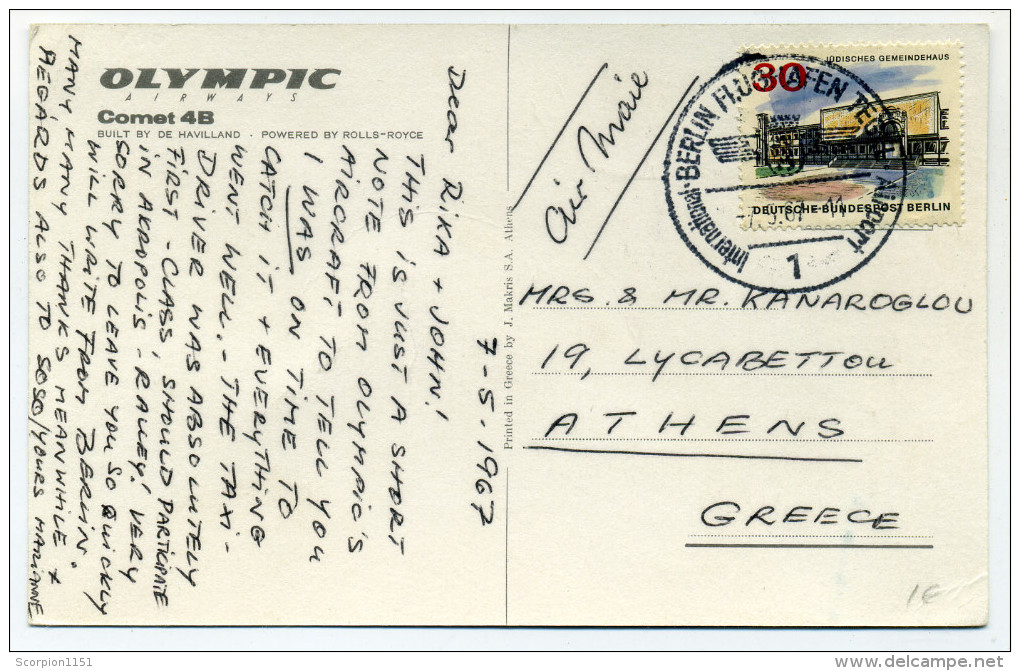 OLYMPIC
AIRWAYS
Comet 4B
BUILT BY DE HAVILLAND · POWERED BY ROLLS-ROYCE
7-5.1967
Dear RIKA + JOHN!
THIS IS JUST A SHORT
NOTE FROM OLYMPIC'S
AIRCRAFT TO TELL YOU
I WAS ON TIME TO
CATCH IT + EVERYTHING
WENT WELL.- THE TAXI-
DRIVER WAS ABSOLUTELY
FIRST-CLASS, SHOULD PARTICIPATE
IN AKROPOLIS-RALLEY! VERY
SORRY TO LEAVE YOU SO QUICKLY
WILL WRITE FROM BERLIN.
MANY MANY THANKS MEANWHILE +
REGARDS ALSO TO SOSO/YOURS MARIANNE
Printed in Greece by J. Makris S.A. Athens
Air Mail
30
JÜDISCHES GEMEINDEHAUS
DEUTSCHE BUNDESPOST BERLIN
BERLIN FLUGHAFEN TEGEL
International Airport
1
MRS. & MR. KANAROGLOU
19, LYCABETTOU
ATHENS
GREECE
1€
Scorpion1151
delcampe.net